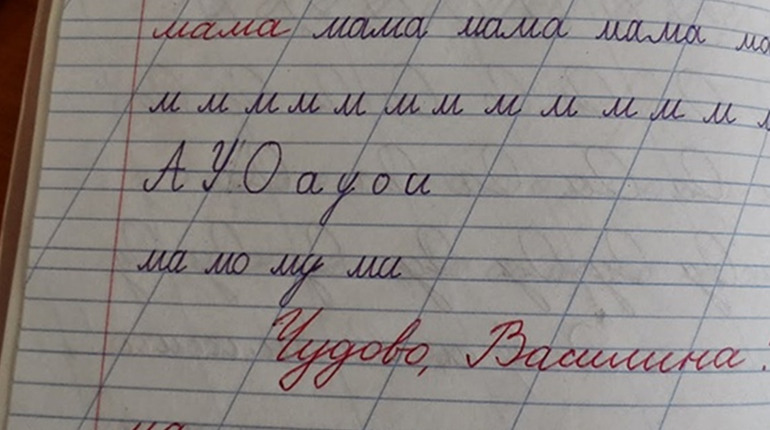 мама мама мама мама
м м м м м м м м м м м м
А У О а у о и
ма мо му ми
Чудово, Василина!